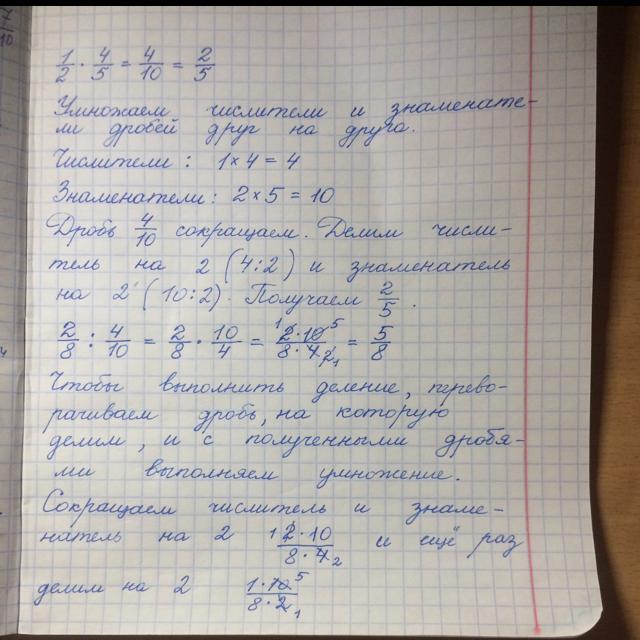 7/10
1/2 · 4/5 = 4/10 = 2/5
Умножаем числители и знаменате-
ли дробей друг на друга.
Числители : 1 × 4 = 4
Знаменатели : 2 × 5 = 10
Дробь 4/10 сокращаем. Делим числи-
тель на 2 (4:2) и знаменатель
на 2 (10:2). Получаем 2/5 .
2/8 : 4/10 = 2/8 · 10/4 = 1 2·10 5 / 8·4 2 1 = 5/8
Чтобы выполнить деление, перево-
рачиваем дробь, на которую
делим, и с полученными дробя-
ми выполняем умножение.
Сокращаем числитель и знаме-
натель на 2 1 2·10 / 8·4 2 и ещё раз
делим на 2 1·10 5 / 8·2 1